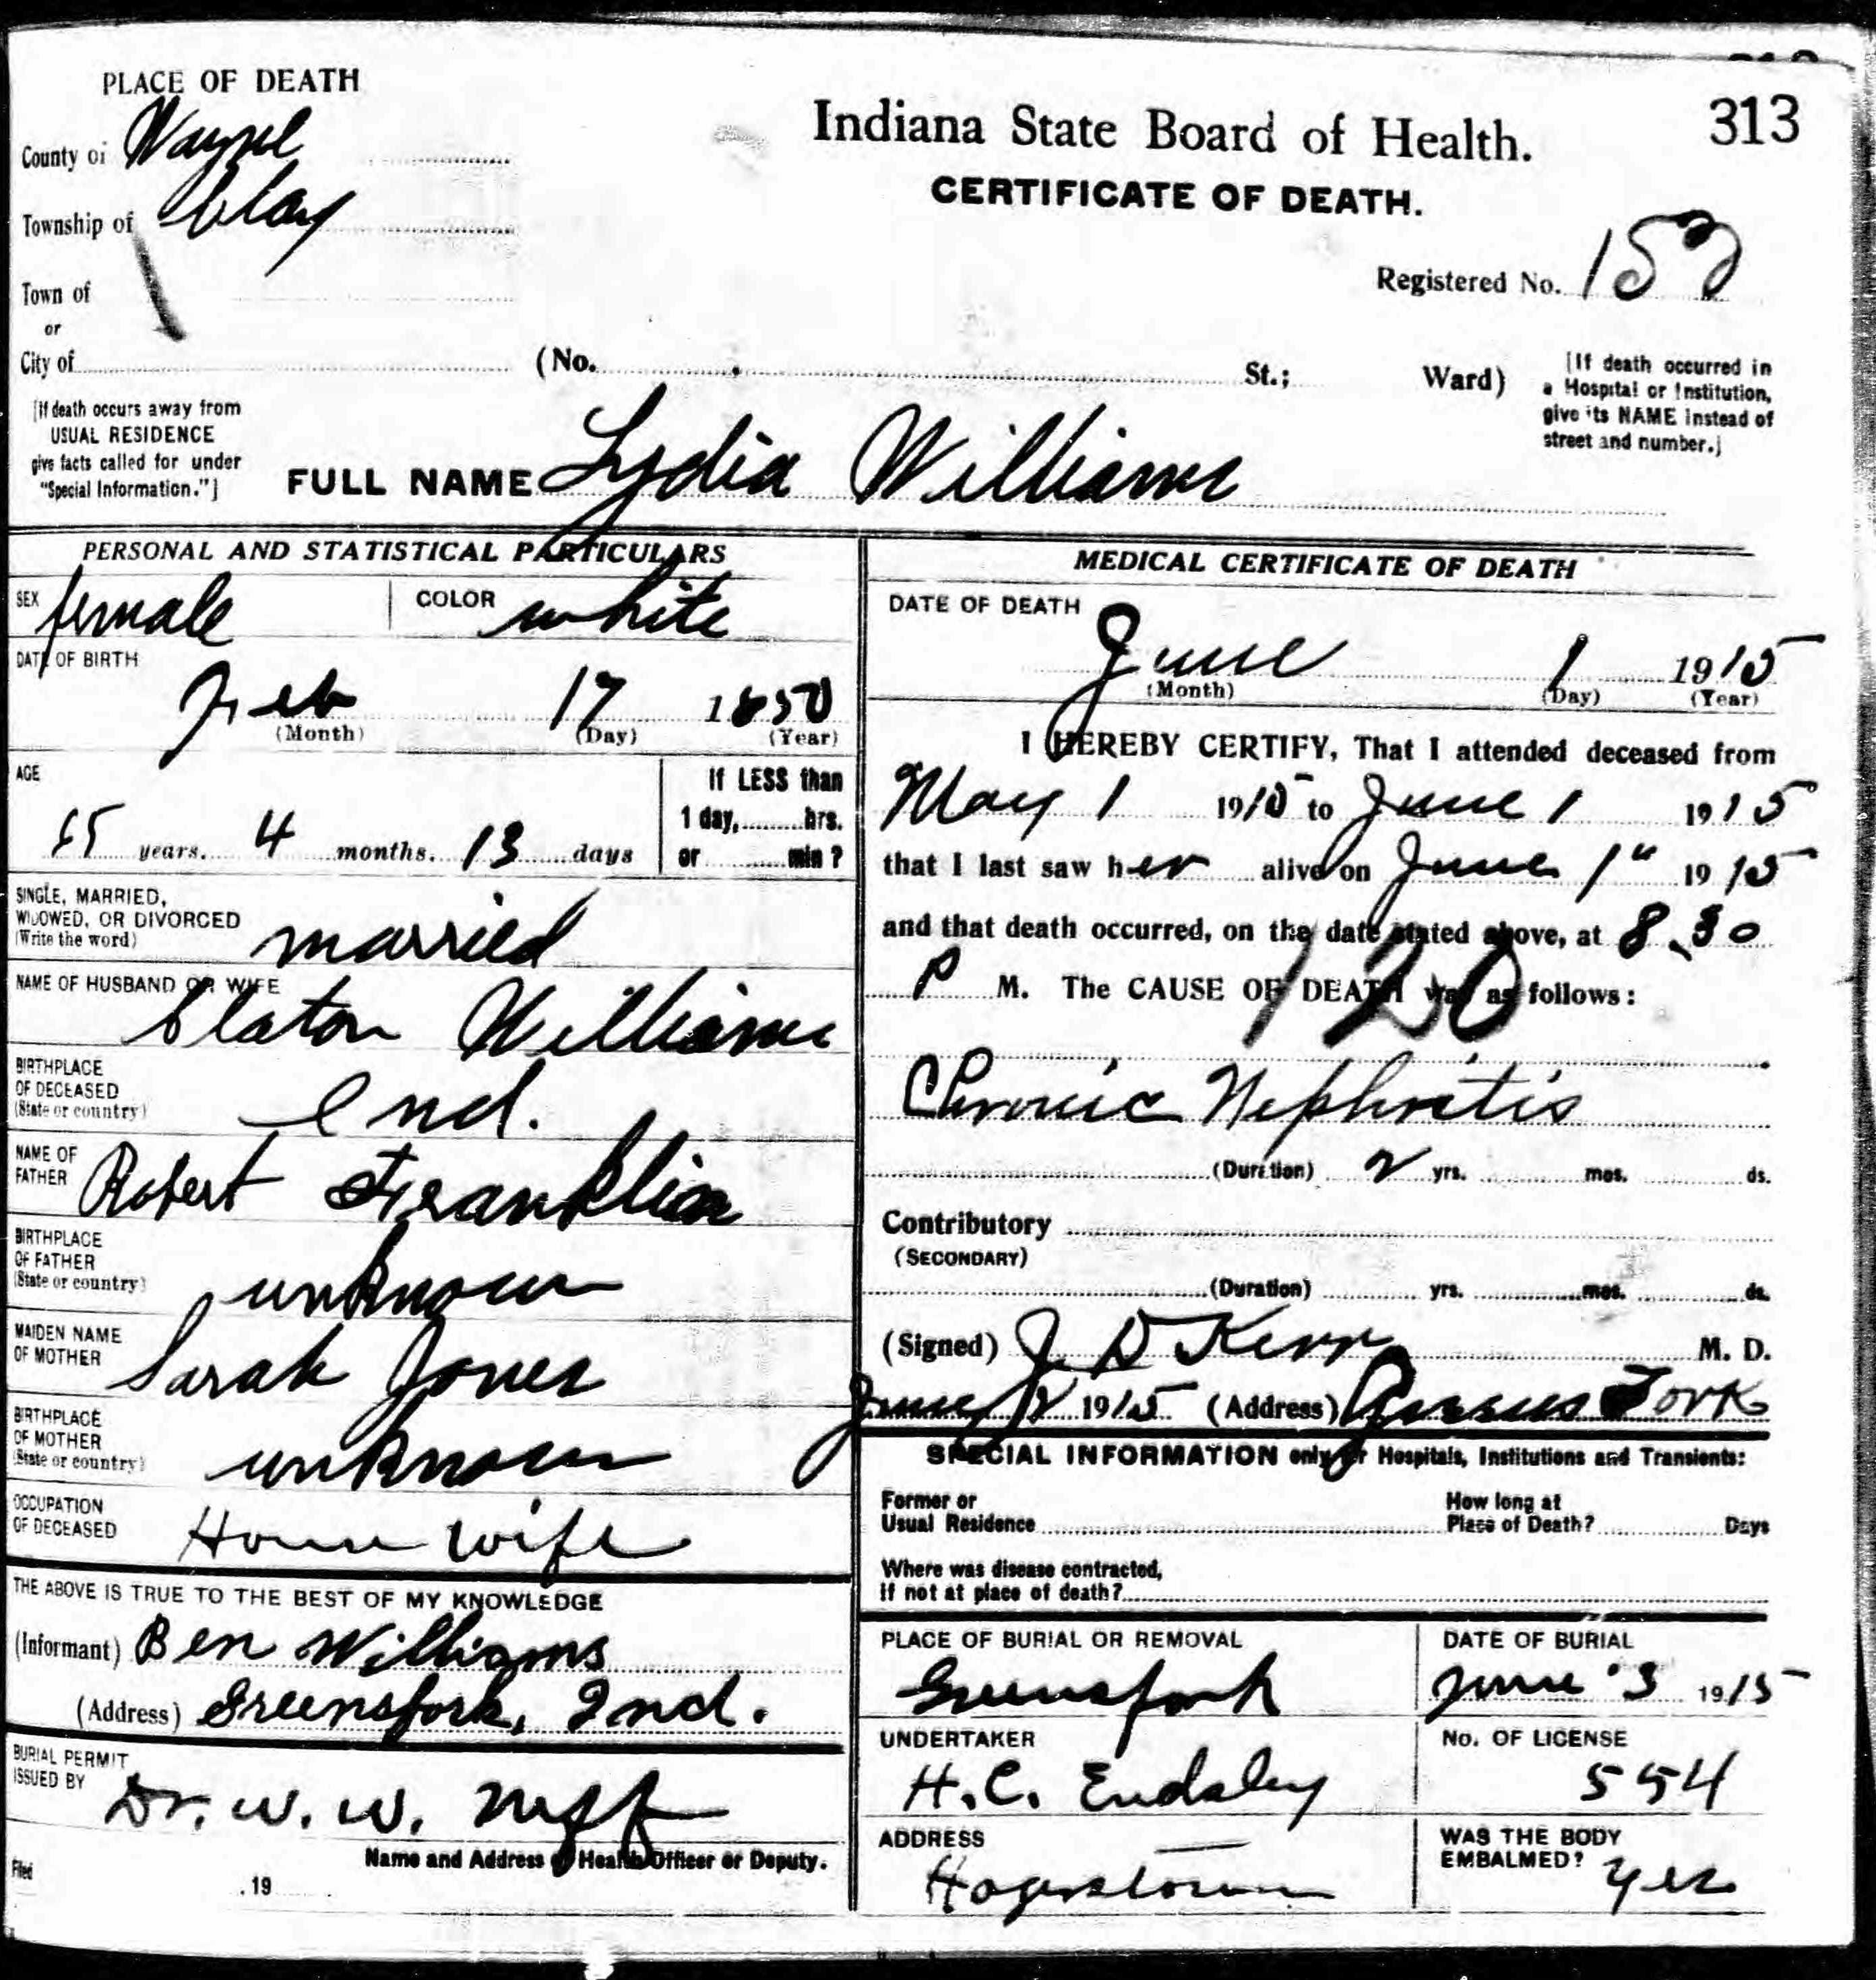 313
PLACE OF DEATH
County of Wayne
Township of Clay
Town of
or
City of
Indiana State Board of Health.
CERTIFICATE OF DEATH.
Registered No. 152
(No. St.; Ward)
[If death occurred in
a Hospital or Institution,
give its NAME instead of
street and number.]
[If death occurs away from
USUAL RESIDENCE
give facts called for under
"Special Information."]
FULL NAME Lydia Williams
PERSONAL AND STATISTICAL PARTICULARS
SEX female COLOR white
DATE OF BIRTH
Feb 17 1850
(Month) (Day) (Year)
AGE
65 years. 4 months. 13 days
If LESS than
1 day, hrs.
or min?
SINGLE, MARRIED,
WIDOWED, OR DIVORCED
(Write the word) married
NAME OF HUSBAND OR WIFE
Slaton Williams
BIRTHPLACE
OF DECEASED
(State or country) Ind.
NAME OF
FATHER Robert Franklin
BIRTHPLACE
OF FATHER
(State or country) unknown
MAIDEN NAME
OF MOTHER Sarah Jones
BIRTHPLACE
OF MOTHER
(State or country) unknown
OCCUPATION
OF DECEASED House wife
THE ABOVE IS TRUE TO THE BEST OF MY KNOWLEDGE
(Informant) Ben Williams
(Address) Greensfork, Ind.
BURIAL PERMIT
ISSUED BY Dr. W. W. Neff
Name and Address of Health Officer or Deputy.
Filed , 19
MEDICAL CERTIFICATE OF DEATH
DATE OF DEATH
June 1 1915
(Month) (Day) (Year)
I HEREBY CERTIFY, That I attended deceased from
May 1 1915 to June 1 1915
that I last saw her alive on June 1" 1915
and that death occurred, on the date stated above, at 8.30
P M. The CAUSE OF DEATH was as follows:
120
Chronic Nephritis
(Duration) 2 yrs. mos. ds.
Contributory
(SECONDARY)
(Duration) yrs. mos. ds.
(Signed) J D Kerr M. D.
June 2 1915 (Address) Greens Fork
SPECIAL INFORMATION only for Hospitals, Institutions and Transients:
Former or
Usual Residence
How long at
Place of Death? Days
Where was disease contracted,
If not at place of death?
PLACE OF BURIAL OR REMOVAL
Greensfork
DATE OF BURIAL
June 3 1915
UNDERTAKER
H.C. Endsley
No. OF LICENSE
554
ADDRESS
Hagerstown
WAS THE BODY
EMBALMED? yes